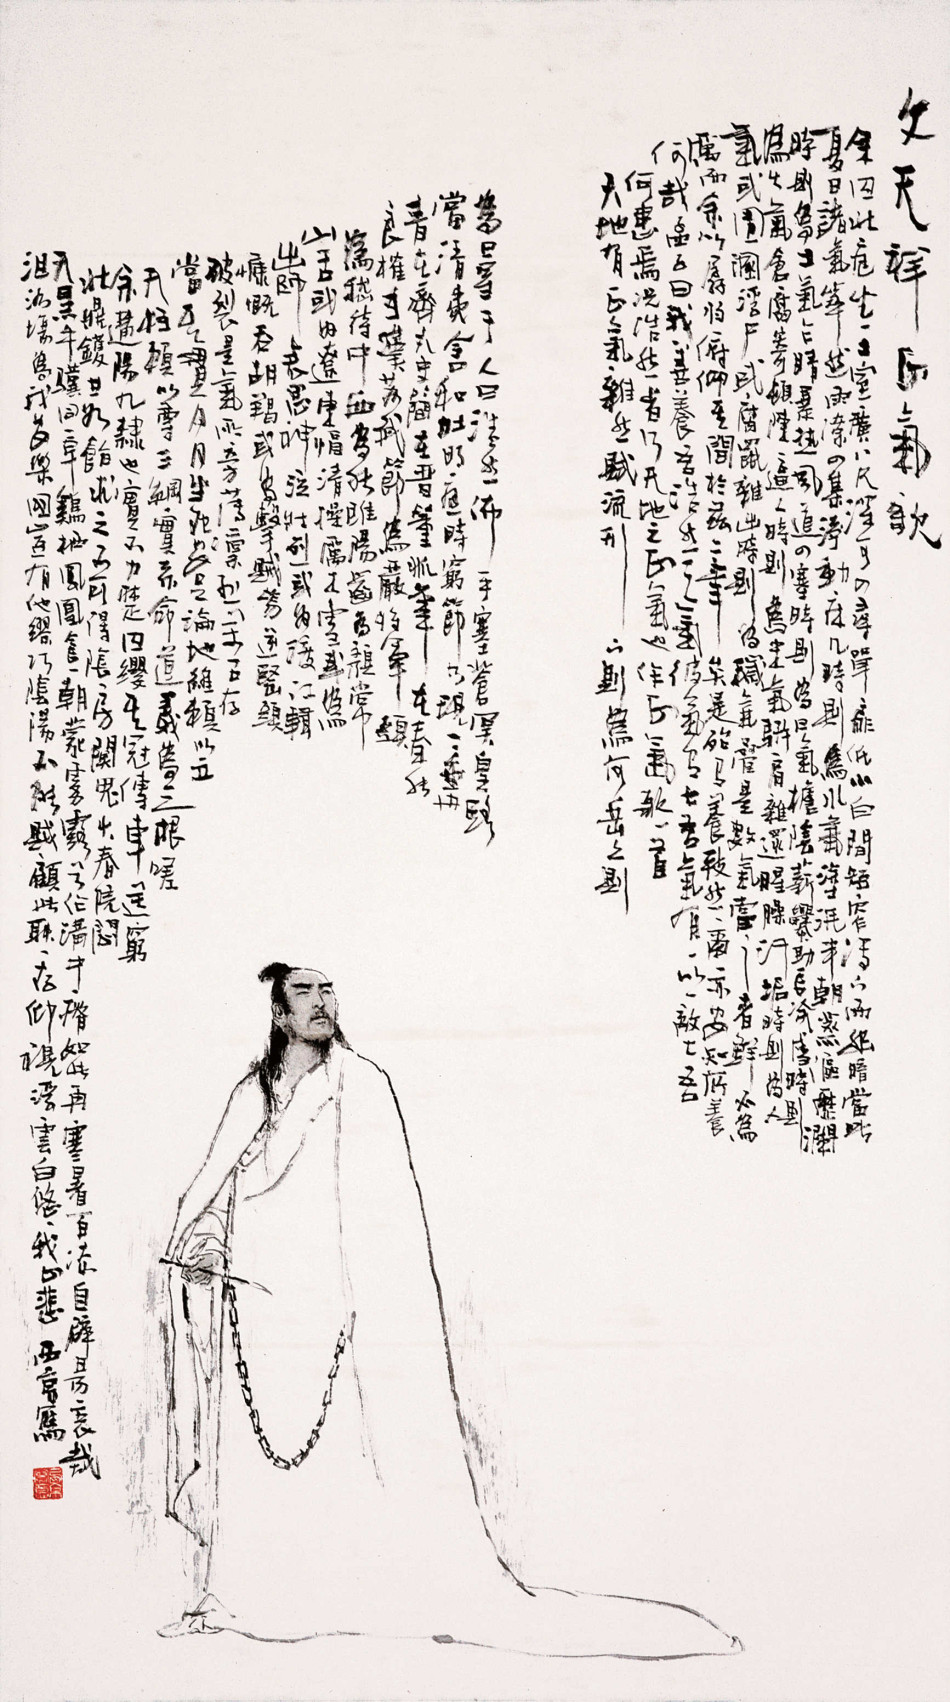 文天祥正氣歌
余囚北庭坐一土室廣八尺深可四尋單扉低小白間短窄汙下而幽暗當此
夏日諸氣萃然雨潦四集浮動床几時則為水氣塗泥半朝蒸漚歷瀾
時則為土氣乍晴暴熱風道四塞時則為日氣檐陰薪爨助長炎虐時則
為火氣倉腐寄頓陳逼人時則為米氣駢肩雜遝腥臊汗垢時則為人
氣或圊溷浮尸或腐鼠雜出時則為穢氣疊是數氣當之者鮮不為
厲而余以孱弱俯仰其間於茲二年矣是殆有養致然爾亦安知所養
何哉孟子曰我善養吾浩然之氣彼氣有七吾氣有一以一敵七吾
何患焉況浩然者乃天地之正氣也作正氣歌一首
天地有正氣雜然賦流形下則為河岳上則
為日星于人曰浩然沛乎塞蒼冥皇路
當清夷含和吐明庭時窮節乃現一一垂丹
青在齊太史簡在晉董狐筆在秦張
良椎在漢蘇武節為嚴將軍頭
為嵇侍中血為張睢陽齒為顏常
山舌或為遼東帽清操厲冰雪或為
出師表鬼神泣壯烈或為渡江楫
慷慨吞胡羯或為擊賊笏逆豎頭
破裂是氣所旁薄凜烈萬古存
當其貫日月生死安足論地維賴以立
天柱賴以尊三綱實系命道義為之根嗟
余遘陽九隸也實不力楚囚纓其冠傳車送窮
北鼎鑊甘如飴求之不可得陰房闃鬼火春院閟
天黑牛驥同皁鷄栖鳳凰食一朝蒙霧露分作溝中瘠如此再寒暑百沴自辟易哀哉
沮洳場為我安樂國豈有他繆巧陰陽不能賊顧此耿耿存仰視浮雲白悠悠我心悲 西京寫